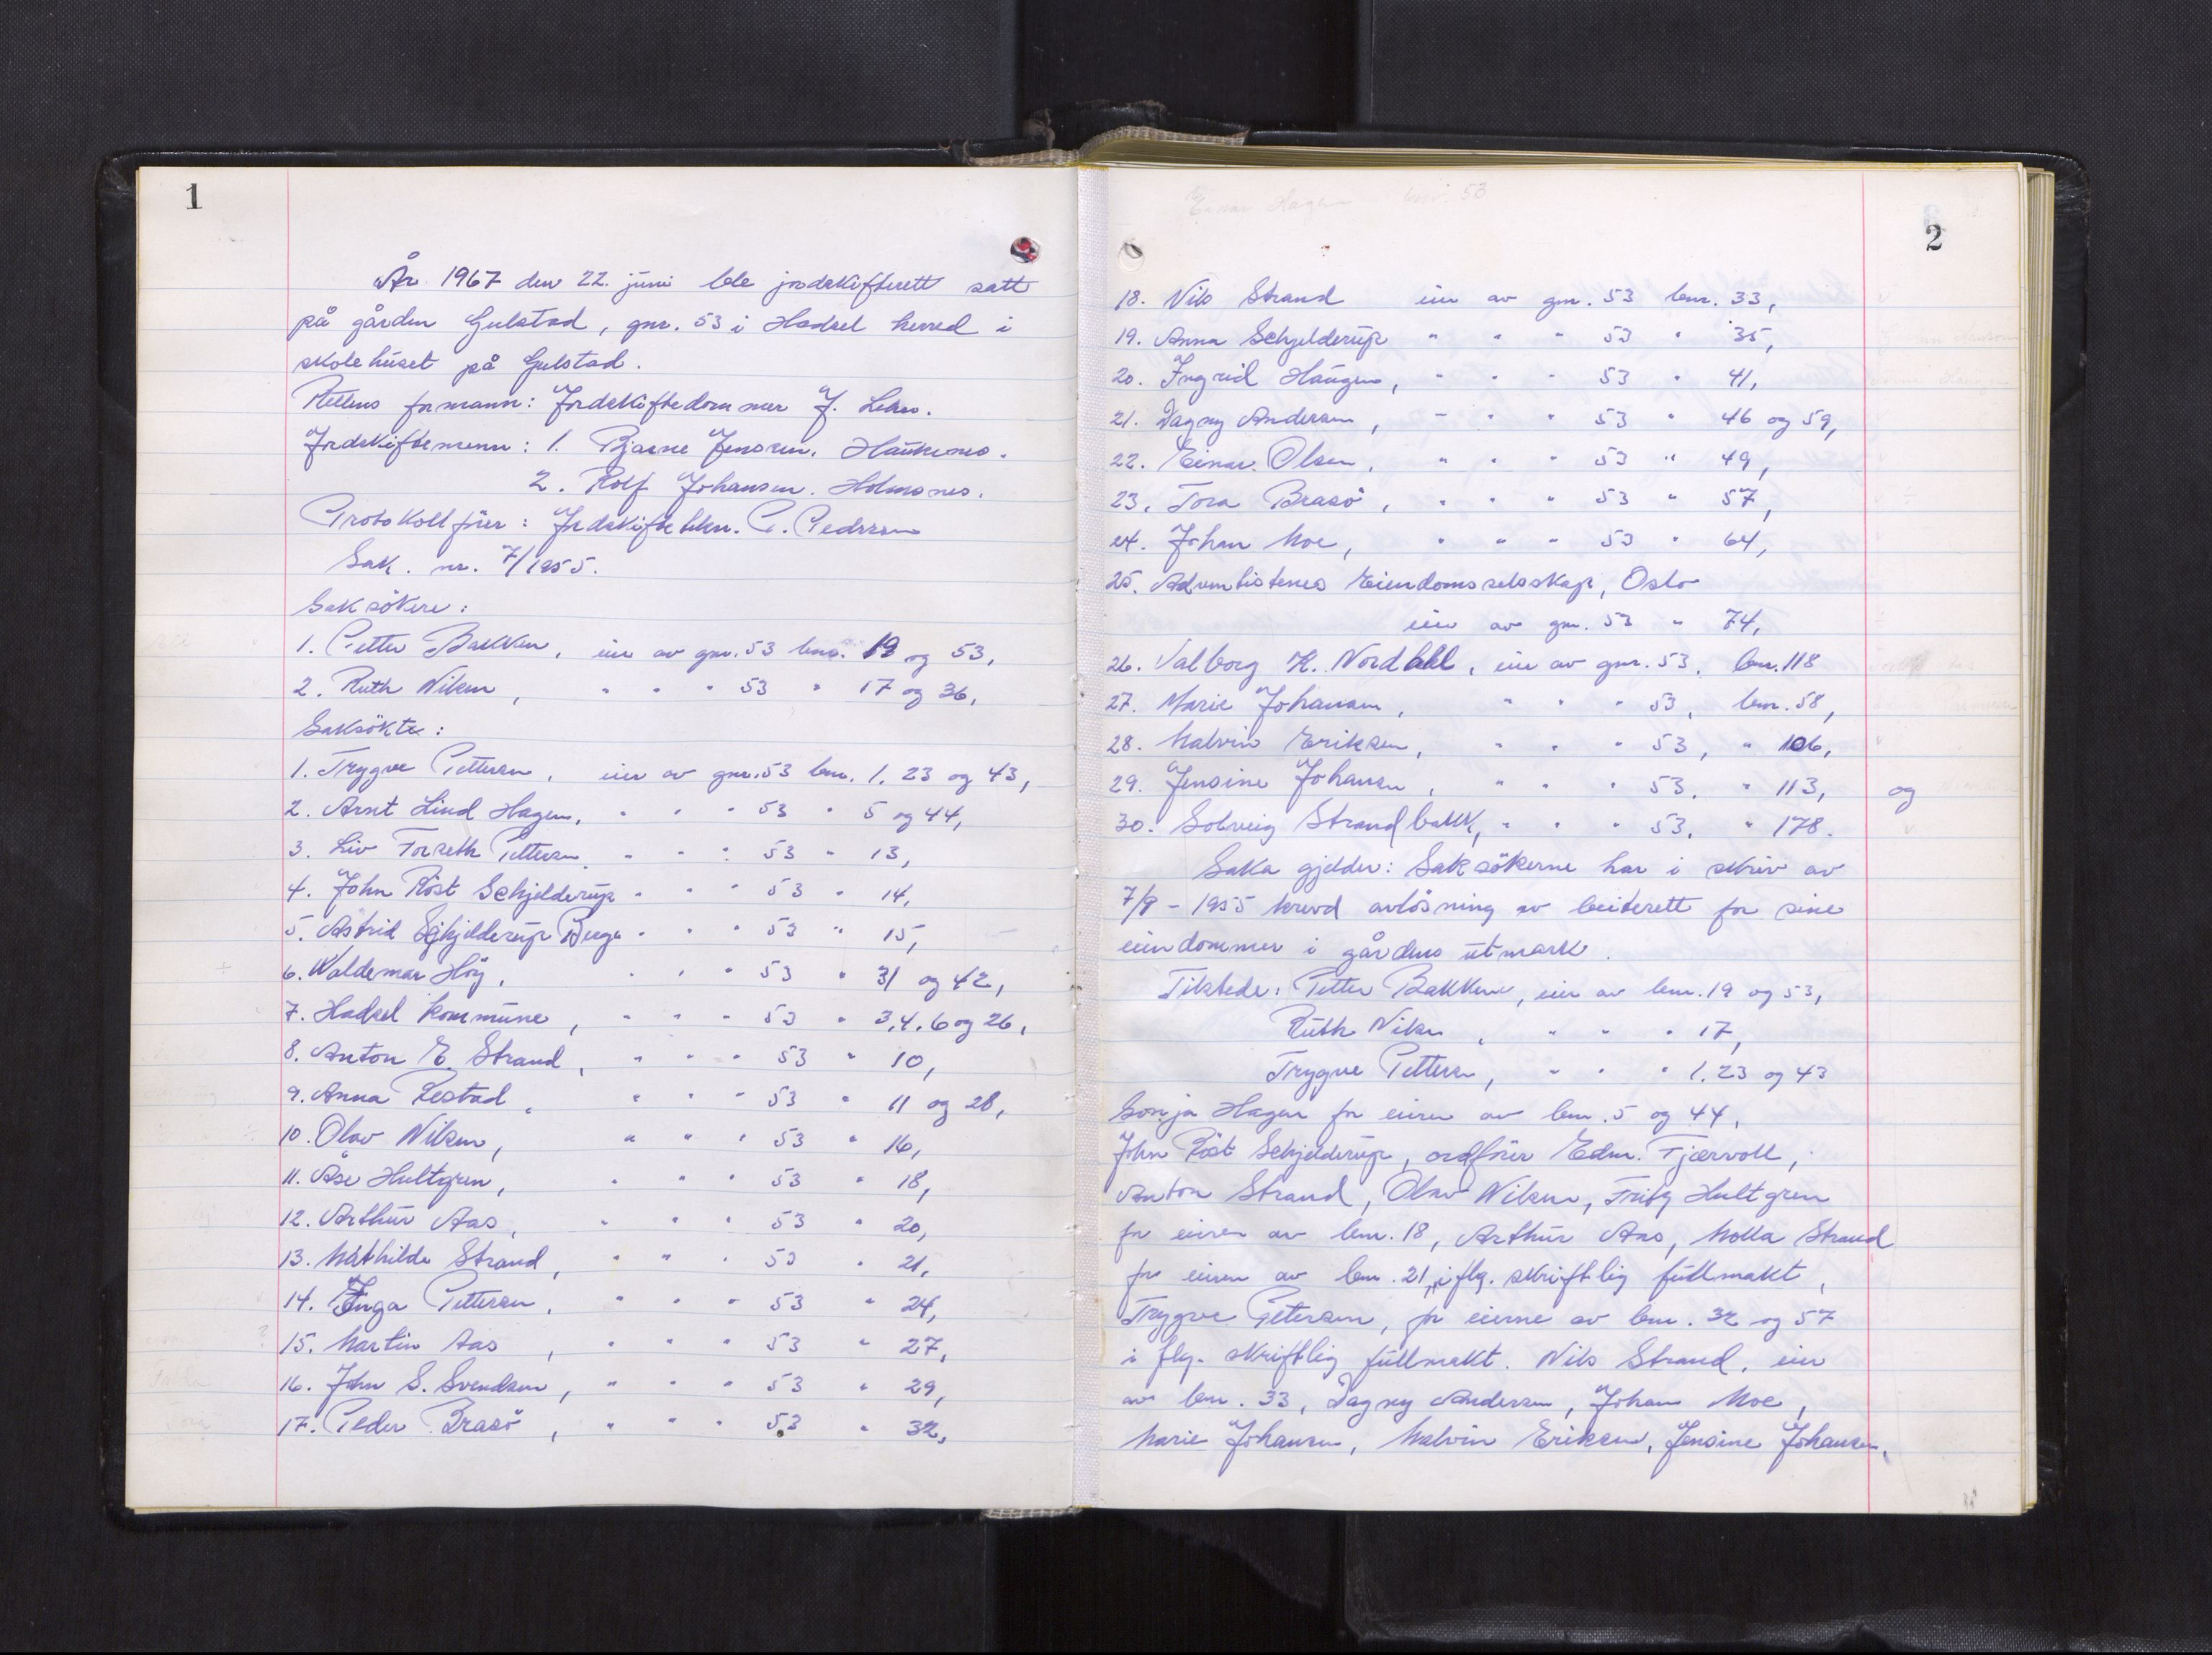 1
År 1967 den 22. juni ble jordskifterett satt
på gården Gulstad, gnr. 53 i Hadsel herred i
skolehuset på Gulstad.
Rettens formann: Jordskiftedommer J. Lehn.
Jordskiftemenn: 1. Bjarne Jensen, Haukenes.
2. Rolf Johansen. Holmsnes.
Protokollfører: Jordskiftetekn. P. Pedersen
Sak. nr. 7/1955.
Saksökere:
1. Petter Bakken, eier av gnr. 53 bnr. 19 og 53,
2. Ruth Nilsen, " " " 53 " 17 og 36,
Saksökte:
1. Trygve Pettersen, eier av gnr. 53 bnr. 1, 23 og 43,
2. Arnt Lind Hagen, " " " 53 " 5 og 44,
3. Liv Torseth Pettersen " " " 53 " 13,
4. John Röst Schjelderup " " " 53 " 14,
5. Astrid Schjelderup Berge " " " 53 " 15,
6. Waldemar Höy, " " " 53 " 31 og 42,
7. Hadsel kommune, " " " 53 " 3, 4, 6 og 26,
8. Anton E. Strand, " " " 53 " 10,
9. Anna Restad, " " " 53 " 11 og 28,
10. Olav Nilsen, " " " 53 " 16,
11. Åse Hultgren, " " " 53 " 18,
12. Arthur Aas, " " " 53 " 20,
13. Mathilde Strand, " " " 53 " 21,
14. Inga Pettersen, " " " 53 " 24,
15. Martin Aas, " " " 53 " 27,
16. John S. Svendsen, " " " 53 " 29,
17. Peder Brasö, " " " 53 " 32,
Einar Hagen bnr. 53
2
18. Nils Strand eier av gnr. 53 bnr. 33,
19. Anna Schjelderup " " " 53 " 35,
20. Ingrid Haugen, " " " 53 " 41,
21. Dagny Andersen, " " " 53 " 46 og 59,
22. Einar Olsen, " " " 53 " 49,
23. Tora Brasö, " " " 53 " 57,
24. Johan Moe, " " " 53 " 64,
25. Adventistenes Eiendomsselsskap, Oslo
eier av gnr. 53 " 74,
26. Valborg K. Nordahl, eier av gnr. 53, bnr. 118
27. Marie Johansen, " " " 53, bnr. 58,
28. Malvin Eriksen, " " " 53, " 106,
29. Jensine Johansen, " " " 53, " 113, og
30. Solveig Strandbakk, " " " 53, " 178.
Saka gjelder: Saksökerne har i skriv av
7/9 - 1955 krevd avlösning av beiterett for sine
eiendommer i gårdens utmark.
Tilstede: Petter Bakken, eier av bnr. 19 og 53,
Ruth Nilsen, " " " 17,
Trygve Pettersen, " " " 1, 23 og 43
Sonja Hagen for eieren av bnr. 5 og 44,
John Röst Schjelderup, ordförer Edm. Fjærvoll,
Anton Strand, Olav Nilsen, Fritz Hultgren
for eieren av bnr. 18, Arthur Aas, Molla Strand
for eieren av bnr. 21, iflg. skriftlig fullmakt,
Trygve Petersen, for eierne av bnr. 32 og 57
i flg. skriftlig fullmakt. Nils Strand, eier
av bnr. 33, Dagny Andersen, Johan Moe,
Marie Johansen, Malvin Eriksen, Jensine Johansen,